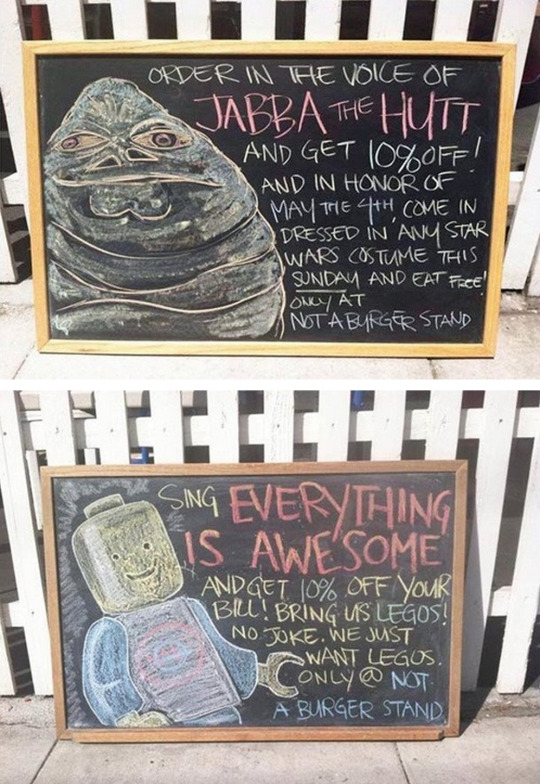 ORDER IN THE VOICE OF
JABBA THE HUTT
AND GET 10% OFF!
AND IN HONOR OF
MAY THE 4TH, COME IN
DRESSED IN ANY STAR
WARS COSTUME THIS
SUNDAY AND EAT FREE!
ONLY AT
NOT A BURGER STAND
SING EVERYTHING
IS AWESOME
AND GET 10% OFF YOUR
BILL! BRING US LEGOS!
NO JOKE. WE JUST
WANT LEGOS.
ONLY @ NOT
A BURGER STAND